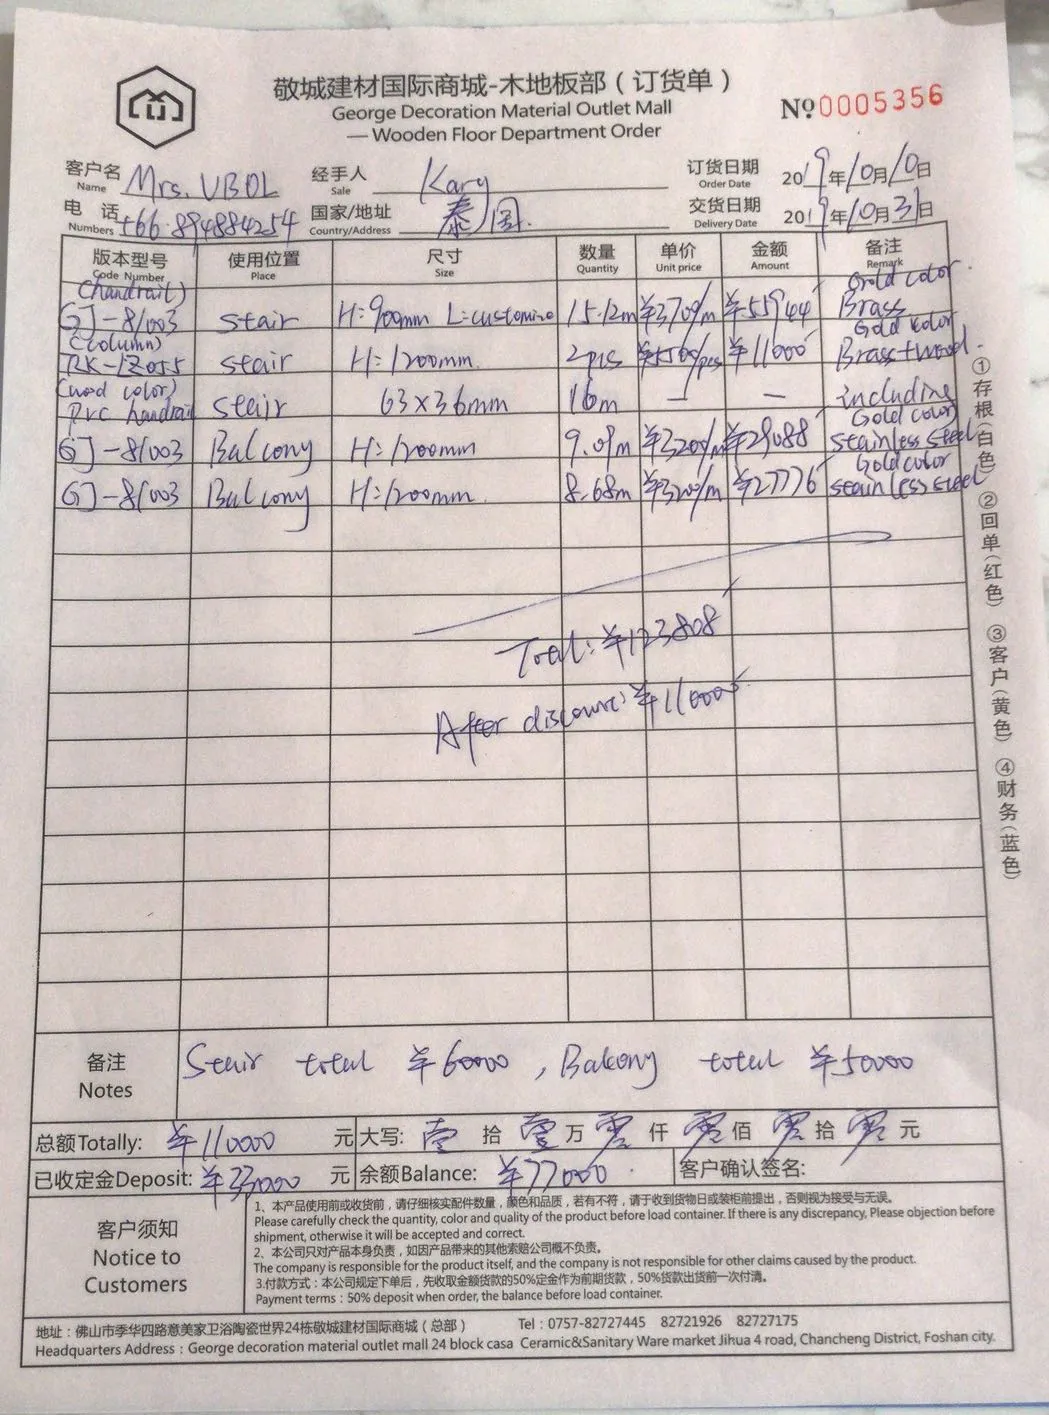 敬城建材国际商城-木地板部（订货单）
George Decoration Material Outlet Mall
— Wooden Floor Department Order
№ 0005356
客户名 Name Mrs. UBOL 经手人 Sale Kary 订货日期 Order Date 2019年10月10日
电话 Numbers +66.894884254 国家/地址 Country/Address 泰国. 交货日期 Delivery Date 2019年10月31日
版本型号 Code Number 使用位置 Place 尺寸 Size 数量 Quantity 单价 Unit price 金额 Amount 备注 Remark
(handrail) Gold color.
GJ-81003 stair H:900mm L:customize 15.12m ¥3700/m ¥55944 Brass
(column) Gold color
RK-1Z055 stair H:1200mm. 2pcs ¥5500/pcs ¥11000 Brass+wood.
(wood color)
PVC handrail stair 63×36mm 16m — — including
Gold color
GJ-81003 Balcony H:1200mm 9.09m ¥3200/m ¥29088 stainless steel
Gold color
GJ-81003 Balcony H:1200mm. 8.68m ¥3200/m ¥27776 stainless steel
Total: ¥123808
After discount: ¥110000
①存根(白色) ②回单(红色) ③客户(黄色) ④财务(蓝色)
备注 Notes Stair total ¥60000, Balcony total ¥50000
总额Totally: ¥110000 元 大写: 壹 拾 壹 万 零 仟 零 佰 零 拾 零 元
已收定金Deposit: ¥33000 元 余额Balance: ¥77000. 客户确认签名:
客户须知
Notice to
Customers
1、本产品使用前或收货前，请仔细核实配件数量，颜色和品质，若有不符，请于收到货物日或装柜前提出，否则视为接受与无误。
Please carefully check the quantity, color and quality of the product before load container. If there is any discrepancy, Please objection before
shipment, otherwise it will be accepted and correct.
2、本公司只对产品本身负责，如因产品带来的其他索赔公司概不负责。
The company is responsible for the product itself, and the company is not responsible for other claims caused by the product.
3.付款方式：本公司规定下单后，先收取金额货款的50%定金作为前期货款，50%货款出货前一次付清。
Payment terms : 50% deposit when order, the balance before load container.
地址：佛山市季华四路意美家卫浴陶瓷世界24栋敬城建材国际商城（总部） Tel : 0757-82727445 82721926 82727175
Headquarters Address : George decoration material outlet mall 24 block casa Ceramic&Sanitary Ware market Jihua 4 road, Chancheng District, Foshan city.